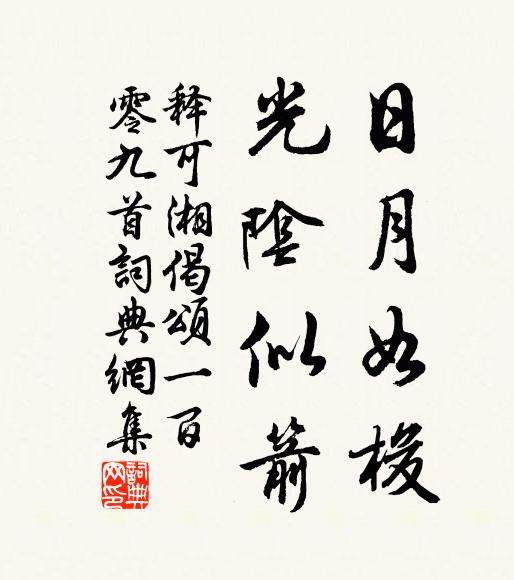 日月如梭
光陰似箭
释可湘偈頌一百
零九首詞典網集
詞典网印